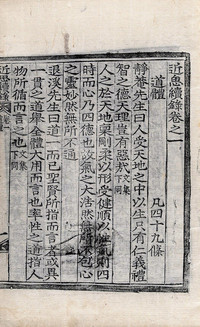 近思續錄卷之一
道體
凡四十九條
靜菴先生曰人受天地之中以生只有仁義禮
智之德天理豈有惡哉
人之於天地稟剛柔以形受健順以性氣則四
時而心乃四德也故氣之大浩然無所不包心
之靈妙然無所不通
退溪先生曰一而已聖賢所指而言者或異
一貫之道舉全體大用而言也率性之道指人
物所循而言之也